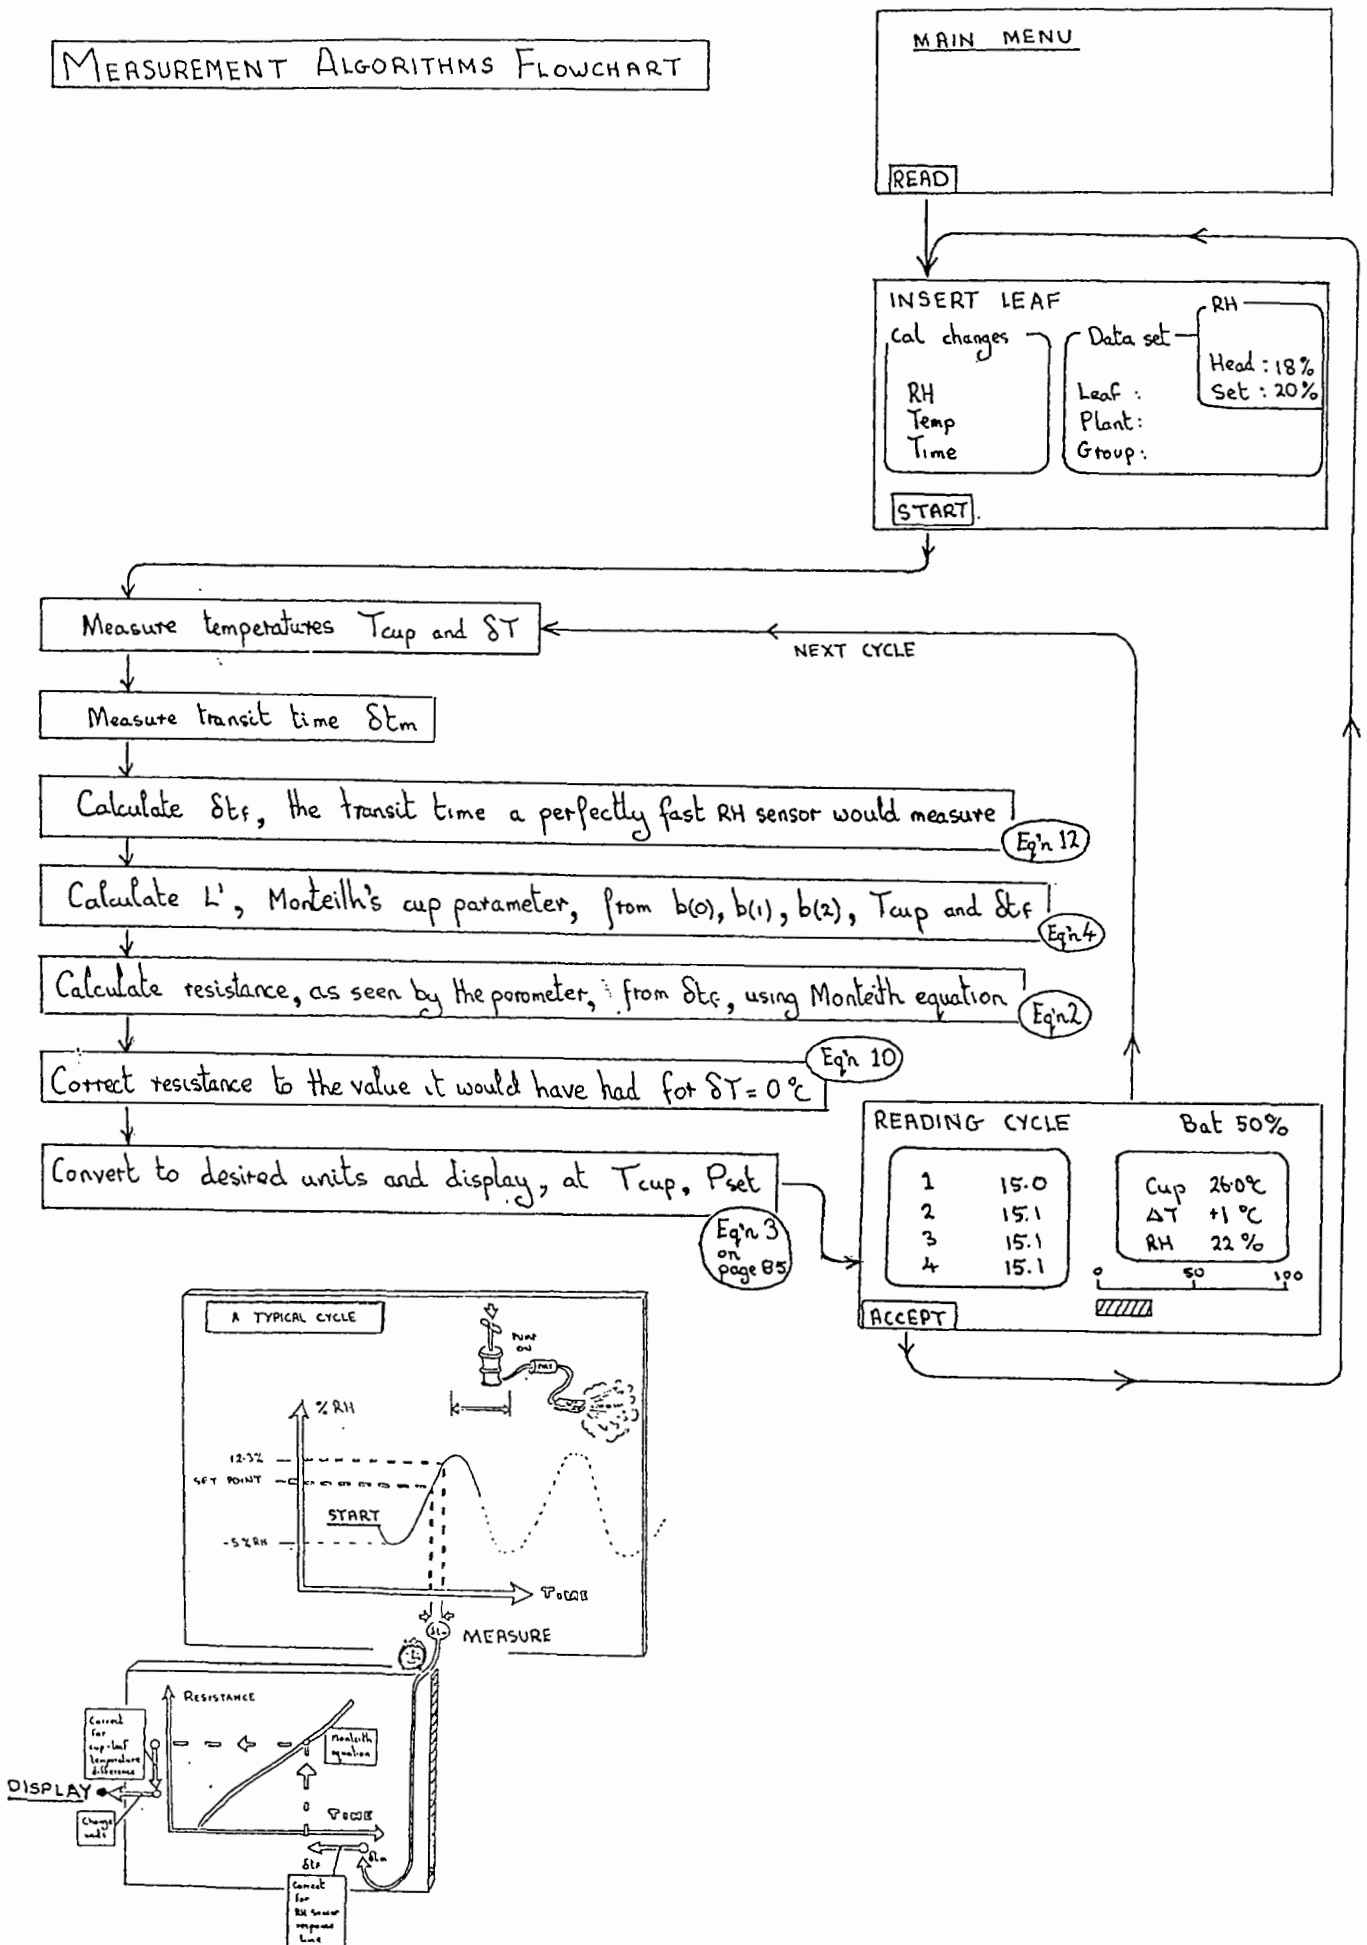 MEASUREMENT ALGORITHMS FLOWCHART
MAIN MENU
READ
INSERT LEAF
Cal changes
RH
Temp
Time
Data set
Leaf :
Plant:
Group:
RH
Head : 18%
Set : 20%
START
Measure temperatures Tcup and δT
NEXT CYCLE
Measure transit time δtm
Calculate δtf, the transit time a perfectly fast RH sensor would measure
Eq'n 12
Calculate L', Monteilh's cup parameter, from b(0), b(1), b(2), Tcup and δtf
Eq'n 4
Calculate resistance, as seen by the porometer, from δtf, using Monteith equation
Eq'n 2
Correct resistance to the value it would have had for δT = 0 °C
Eq'n 10
Convert to desired units and display, at Tcup, Pset
Eq'n 3
on
page 85
READING CYCLE Bat 50%
1 15.0
2 15.1
3 15.1
4 15.1
Cup 26.0°C
ΔT +1 °C
RH 22 %
0 50 100
ACCEPT
A TYPICAL CYCLE
PUMP
ON
% RH
12.3%
SET POINT
START
-5%RH
TIME
δtm
MEASURE
RESISTANCE
Correct
for
cup-leaf
temperature
difference
Monteith
equation
DISPLAY
Change
units
TIME
δtf
δtm
Correct
for
RH sensor
response
time